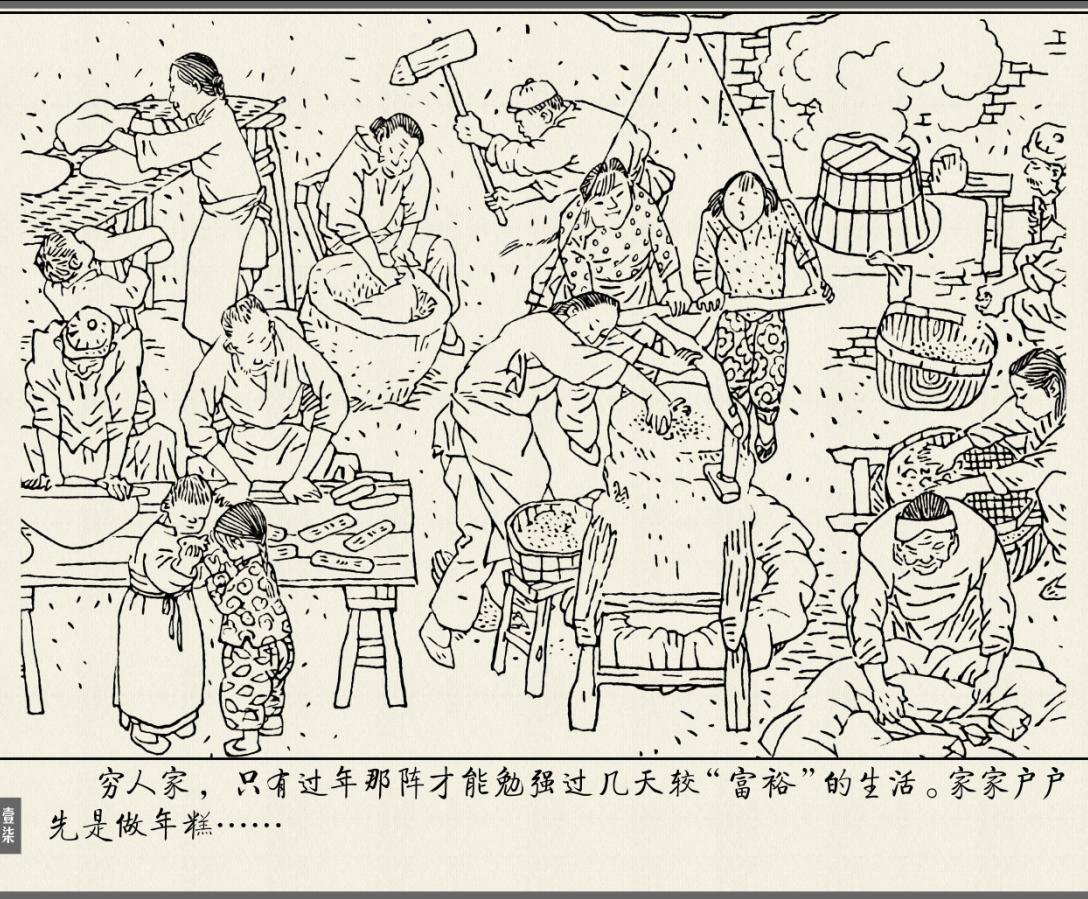 穷人家，只有过年那阵才能勉强过几天较“富裕”的生活。家家户户
先是做年糕……
壹柒